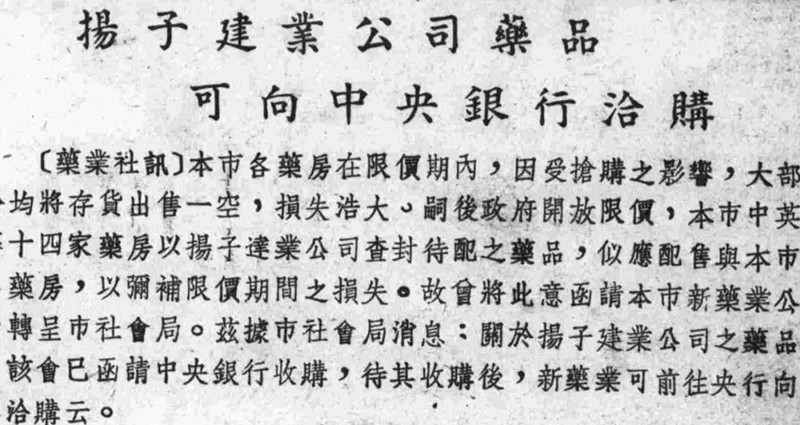 揚子建業公司藥品
可向中央銀行洽購
〔藥業社訊〕本市各藥房在限價期內，因受搶購之影響，大部
均將存貨出售一空，損失浩大。嗣後政府開放限價，本市中英
十四家藥房以揚子達業公司查封待配之藥品，似應配售與本市
藥房，以彌補限價期間之損失。故曾將此意函請本市新藥業公
轉呈市社會局。茲據市社會局消息：關於揚子建業公司之藥品
該會已函請中央銀行收購，待其收購後，新藥業可前往央行向
洽購云。